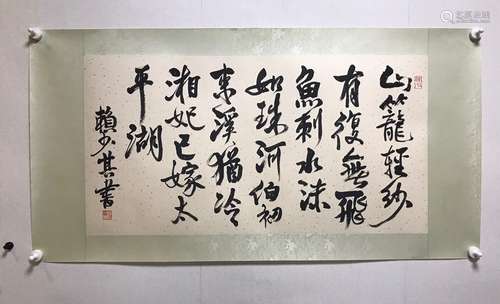 山竹籠輕紗
有復無飛
魚刺水沫
如珠河伯初
來溪猶冷
湘妃已嫁太
平湖
賴少其書